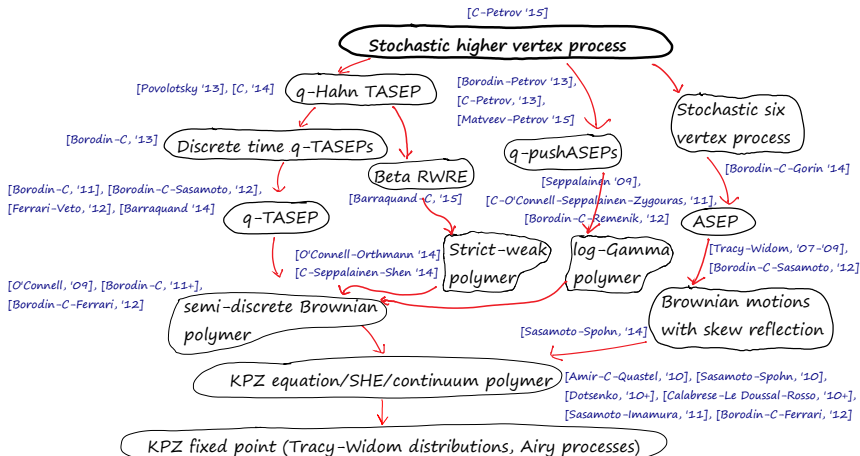 [C-Petrov '15]
Stochastic higher vertex process
[Povolotsky '13], [C, '14]
q-Hahn TASEP
[Borodin-Petrov '13],
[C-Petrov, '13],
[Matveev-Petrov '15]
Stochastic six
vertex process
[Borodin-C, '13]
Discrete time q-TASEPs
q-pushASEPs
Beta RWRE
[Borodin-C-Gorin '14]
[Borodin-C, '11], [Borodin-Sasamoto, '12],
[Ferrari-Veto, '12], [Barraquand '14]
q-TASEP
[Barraquand-C, '15]
[Seppalainen '09],
[C-O'Connell-Seppalainen-Zygouras, '11],
[Borodin-C-Remenik, '12]
ASEP
[O'Connell-Orthmann '14]
[C-Seppalainen-Shen '14]
Strict-weak
polymer
log-Gamma
polymer
[Tracy-Widom, '07-'09],
[Borodin-C-Sasamoto, '12]
[O'Connell, '09], [Borodin-C, '11+],
[Borodin-C-Ferrari, '12]
semi-discrete Brownian
polymer
Brownian motions
with skew reflection
[Sasamoto-Spohn, '14]
KPZ equation/SHE/continuum polymer
[Amir-C-Quastel, '10], [Sasamoto-Spohn, '10],
[Dotsenko, '10+], [Calabrese-Le Doussal-Rosso, '10+],
[Sasamoto-Imamura, '11], [Borodin-C-Ferrari, '12]
KPZ fixed point (Tracy-Widom distributions, Airy processes)